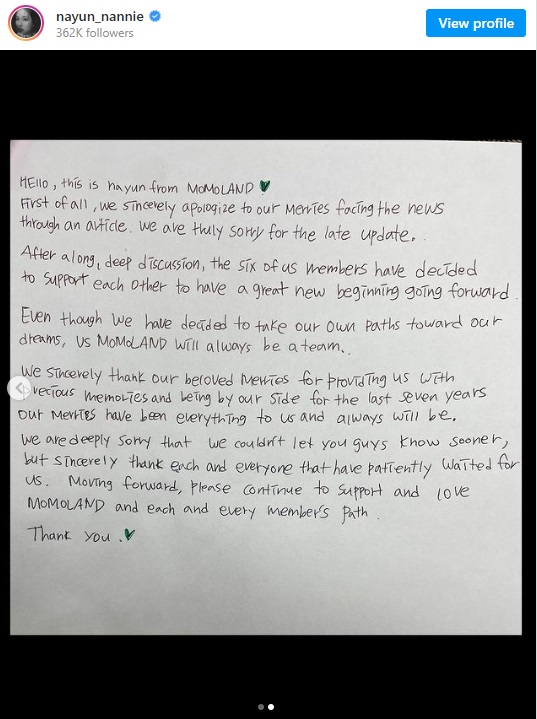 nayun_nannie
362K followers
View profile
HEllo, this is nayun from MOMOLAND
First of all, we sincerely apologize to our Merries facing the news
through an article. We are truly sorry for the late update.
After a long, deep discussion, the six of us members have decided
to support each other to have a great new beginning going forward.
Even though we have decided to take our own paths toward our
dreams, us MOMOLAND will always be a team.
We sincerely thank our beloved Merries for providing us with
recious memories and being by our side for the last seven years
Our Merries have been everything to us and always will be.
We are deeply sorry that we couldn't let you guys know sooner,
but sincerely thank each and everyone that have patiently waited for
us. Moving forward, please continue to support and love
MOMOLAND and each and every member's path.
Thank you.